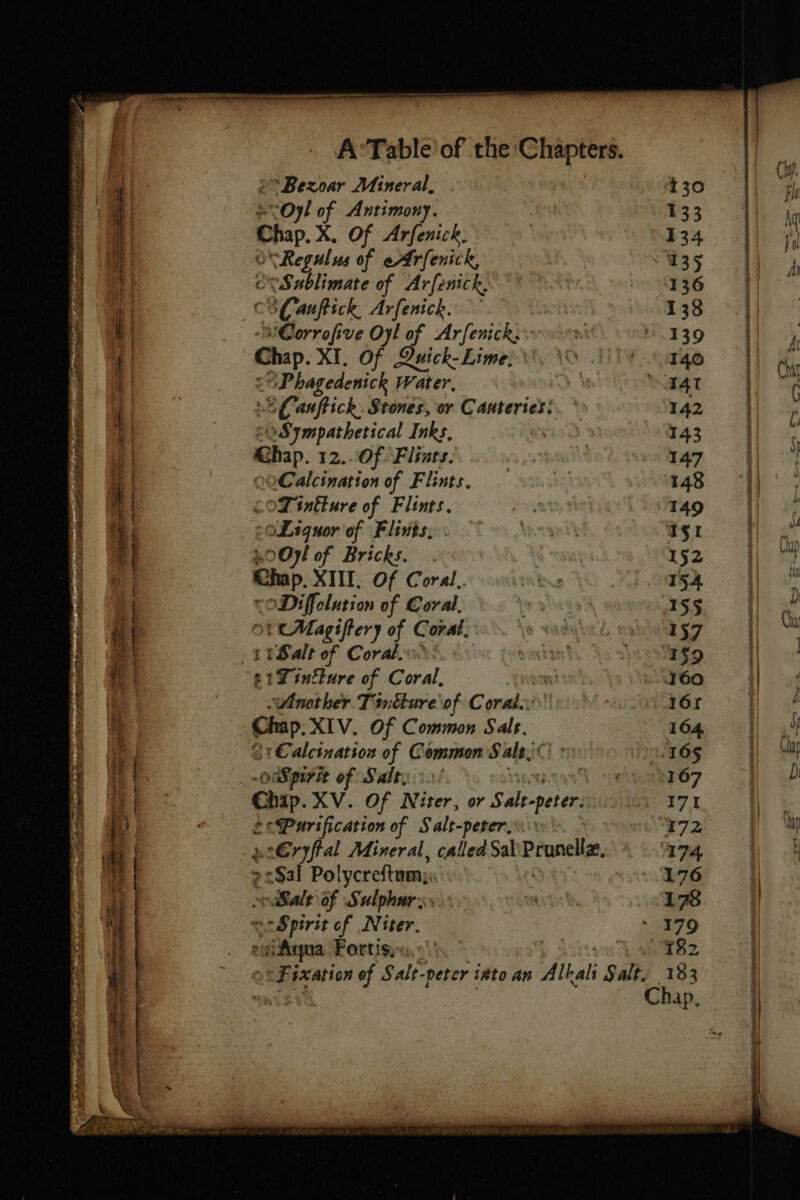 A Table of the Chapters.
Bezoar Mineral, 130
Oyl of Antimony. 133
Chap. X. Of Arſenick. 134
Regulus of Arſenick, 135
Sublimate of Arſenick, 136
Cauſtick Arſenick. 138
Corroſive Oyl of Arſenick; 139
Chap. XI. Of Quick-Lime, 140
Phagedenick Water, 141
Cauſtick Stones, or Cauteries. 142
Sympathetical Inks. 143
Chap. 12. Of Flints. 147
Calcination of Flints. 148
Tincture of Flints. 149
Liquor of Flints, 151
Oyl of Bricks. 152
Chap. XIII. Of Coral. 154
Diſſolution of Coral, 155
Magiſtery of Coral, 157
Salt of Coral. 159
Tincture of Coral, 160
Another Tincture of Coral. 161
Chap. XIV. Of Common Salt. 164
Calcination of Common Salt, 165
Spirit of Salt, 167
Chap. XV. Of Niter, or Salt-peter. 171
Purification of Salt-peter, 172
Cryſtal Mineral, called Sal Prunellæ, 174
Sal Polycreſtum, 176
Salt of Sulphur, 178
Spirit of Niter. 179
Aqua Fortis, 182
Fixation of Salt-peter into an Alkali Salt, 183
Chap.